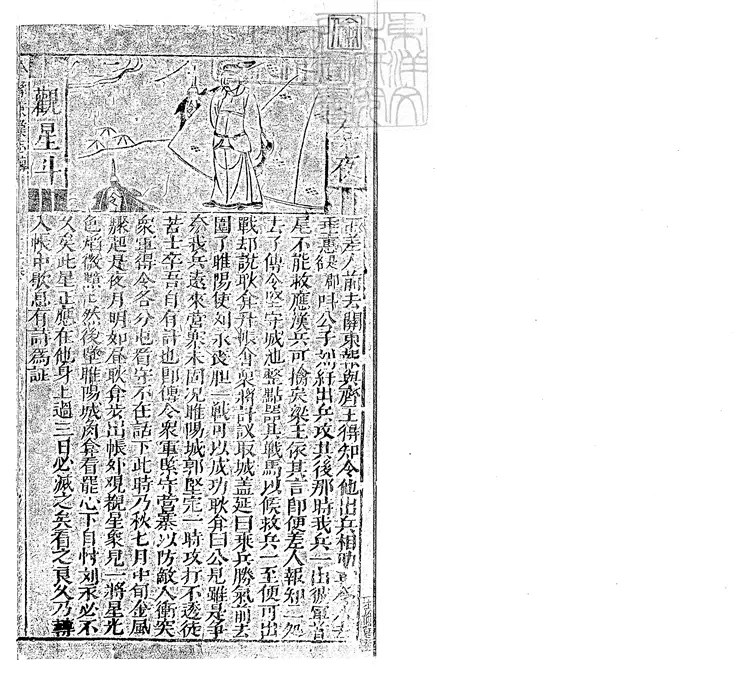 夜
觀星斗
差人前去關東報與齊王得知令他出兵相助
垂惠 呌公子 紆出兵攻其後那時我兵一出彼軍首
尾不能救應漢兵可擒矣梁王依其言即便差人報知一処
去了傳令堅守城池整點器具戰馬以候救兵一至便可出
戰却說耿弇升帳會衆將計議取城盖延曰乘兵勝氣前去
圍了睢陽使刘永丧胆一戰可以成功耿弇曰公見雖是爭
奈我兵遠來營寨未固况睢陽城郭堅完一時攻打不透徒
苦士卒吾自有計也即傳令衆軍緊守營寨以防敵人衝突
衆軍得令各分屯看守不在話下此時乃秋七月中旬金風
驟起是夜月明如昼耿弇步出帳外观觀星象見一將星光
色焰微黯 然後墜睢陽城内弇看罷心下自忖刘永必不
久矣此星正應在他身上過三日必滅之矣看之良久乃轉
入帳中歇息有詩為証